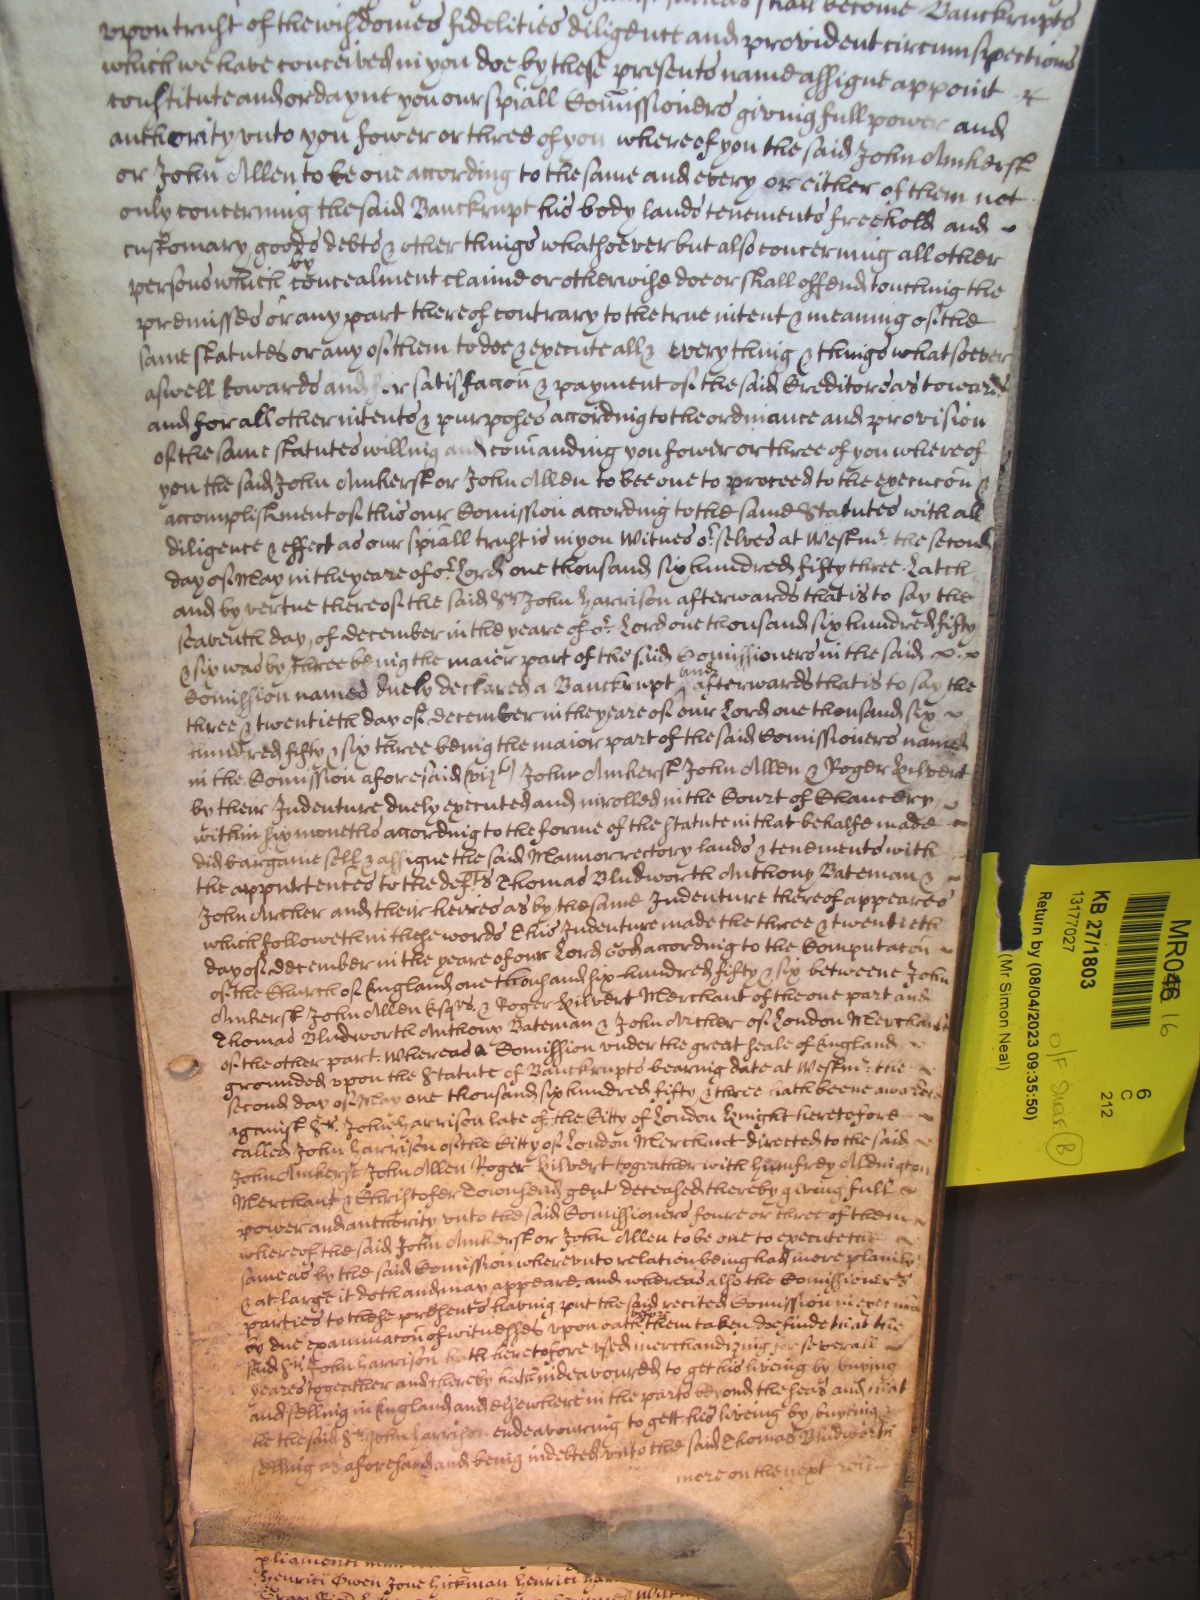 shall become Banckrupts
vpon trust of the wisdomes fidelities diligence and provident circumspections
which we have conceived in you doe by these presents name assigne appoint
constitute and ordayne you our spiall Comissioners giving full power and
authority vnto you fower or three of you whereof you the said John Amherst
or John Allen to be one according to the same and every or either of them not
only concerning the said Banckrupt his body lands tenements freehold and
customary goods debts & other things whatsoever but also concerning all other
persons which by concealment claime or otherwise doe or shall offend touching the
premisses or any part thereof contrary to the true intent & meaning of the
same statutes or any of them to doe & execute all & every thing & things whatsoever
aswell towards and for satisfaccon & payment of the said Creditors as towards
and for all other intents & purposes according to the ordinance and provision
of the same statutes willing and comanding you fower or three of you whereof
you the said John Amherst or John Allen to bee one to proceed to the execucon &
accomplishment of this our Comission according to the same Statutes with all
diligence & effect as our spiall trust is in you Witnes or selves at Westmr. the second
day of May in the yeare of or Lord one thousand six hundred fifty three. Lach
and by vertue thereof the said Sr John Harrison afterwards that is to say the
seaventh day of december in the yeare of or Lord one thousand six hundred fifty
& six was by three being the maior part of the said Comissioners in the said
Comission named duely declared a Banckrupt and afterwards that is to say the
three & twentieth day of december in the yeare of our Lord one thousand six
hundred fifty & six three being the maior part of the said Comissioners named
in the Comission aforesaid (vizt) John Amherst John Allen & Roger Kilvert
by their Indenture duely executed and inrolled in the Court of Chancery
within six moneths according to the forme of the statute in that behalfe made
did bargaine sell & assigne the said Mannor rectory lands & tenements with
the appurtences to the defts Thomas Bludworth Anthony Bateman &
John Archer and their heires as by the same Indenture thereof appeares
which followeth in these words This Indenture made the three & twentieth
day of december in the yeare of our Lord God according to the Computacon
of the Church of England one thousand six hundred fifty & six betweene John
Amherst John Allen Esqrs. & Roger Kilvert Merchant of the one part and
Thomas Bludworth Anthony Bateman & John Archer of London Merchants
of the other part. Whereas a Comission vnder the great seale of England
grounded vpon the Statute of Banckrupts bearing date at Westmr. the
second day of May one thousand six hundred fifty & three hath beene awarded
against Sr. John Harrison late of the Citty of London Knight heretofore
called John Harrison of the Citty of London Merchant directed to the said
John Amherst John Allen Roger Kilvert togeather with Humfrey Aldington
Merchant & Christofer Townsend gent deceased thereby giving full
power and authority vnto the said Comissioners foure or three of them
whereof the said John Amherst or John Allen to be one to execute the
same as by the said Comission wherevnto relation being had more plainly
& at large it doth and may appeare. and whereas also the Comissioners
parties to these presents having put the said recited Comission in execucon
by due examinacon of witnesses vpon oath before them taken doe finde that the
said Sr. John Harrison hath heretofore vsed merchandizing for severall
yeares togeather and thereby hath indeavoured to get his living by buying
and selling in England and elsewhere in the parts beyond the seas and that
he the said Sr. John Harrison endeavouring to gett his liveing by buyeing
selling as aforesaid and being indebted vnto the said Thomas Bludworth
more on the next roll
Henrici Owen Jone Hickman Henrici
MR046 16
KB 27/1803
13177027
Return by (08/04/2023 09:35:50)
(Mr Simon Neal)
6
C
212
B